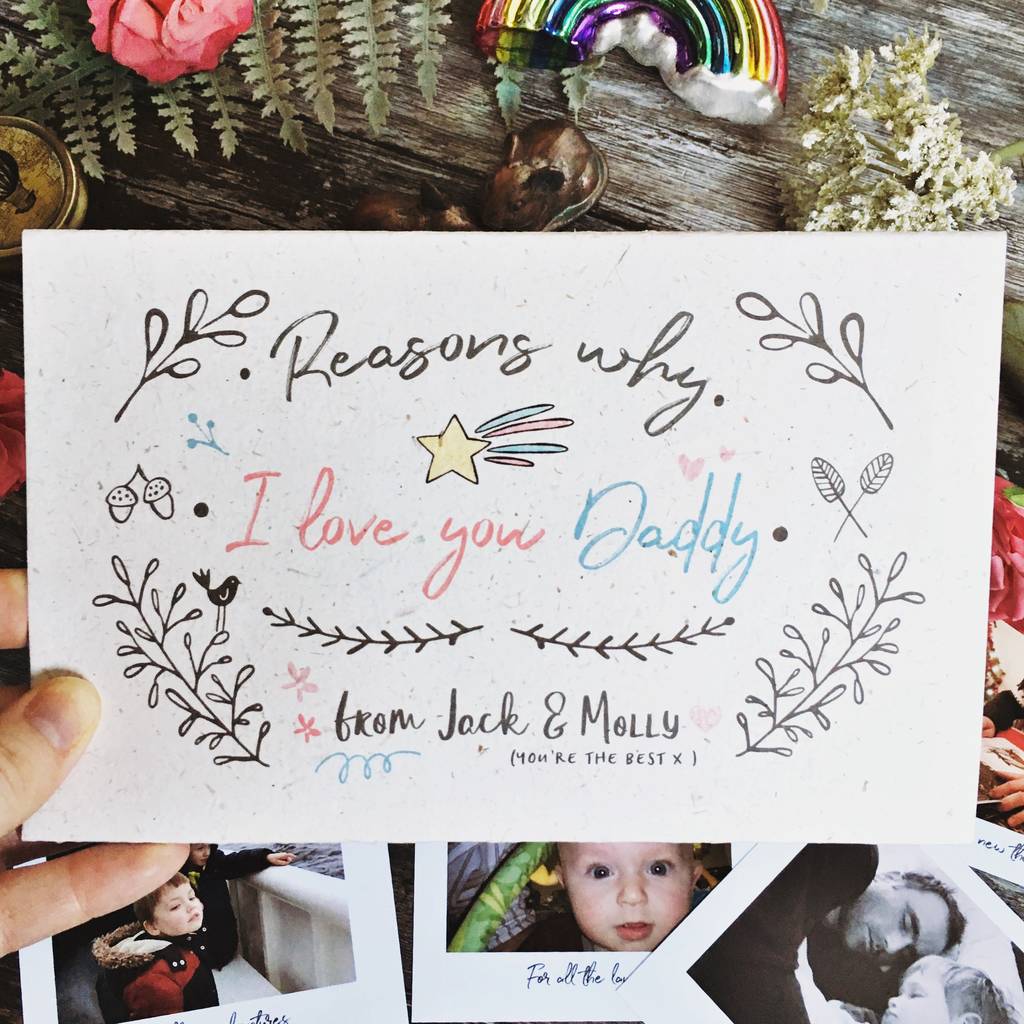 Reasons why
I love you Daddy
from Jack & Molly
(YOU'RE THE BEST x)
For all the